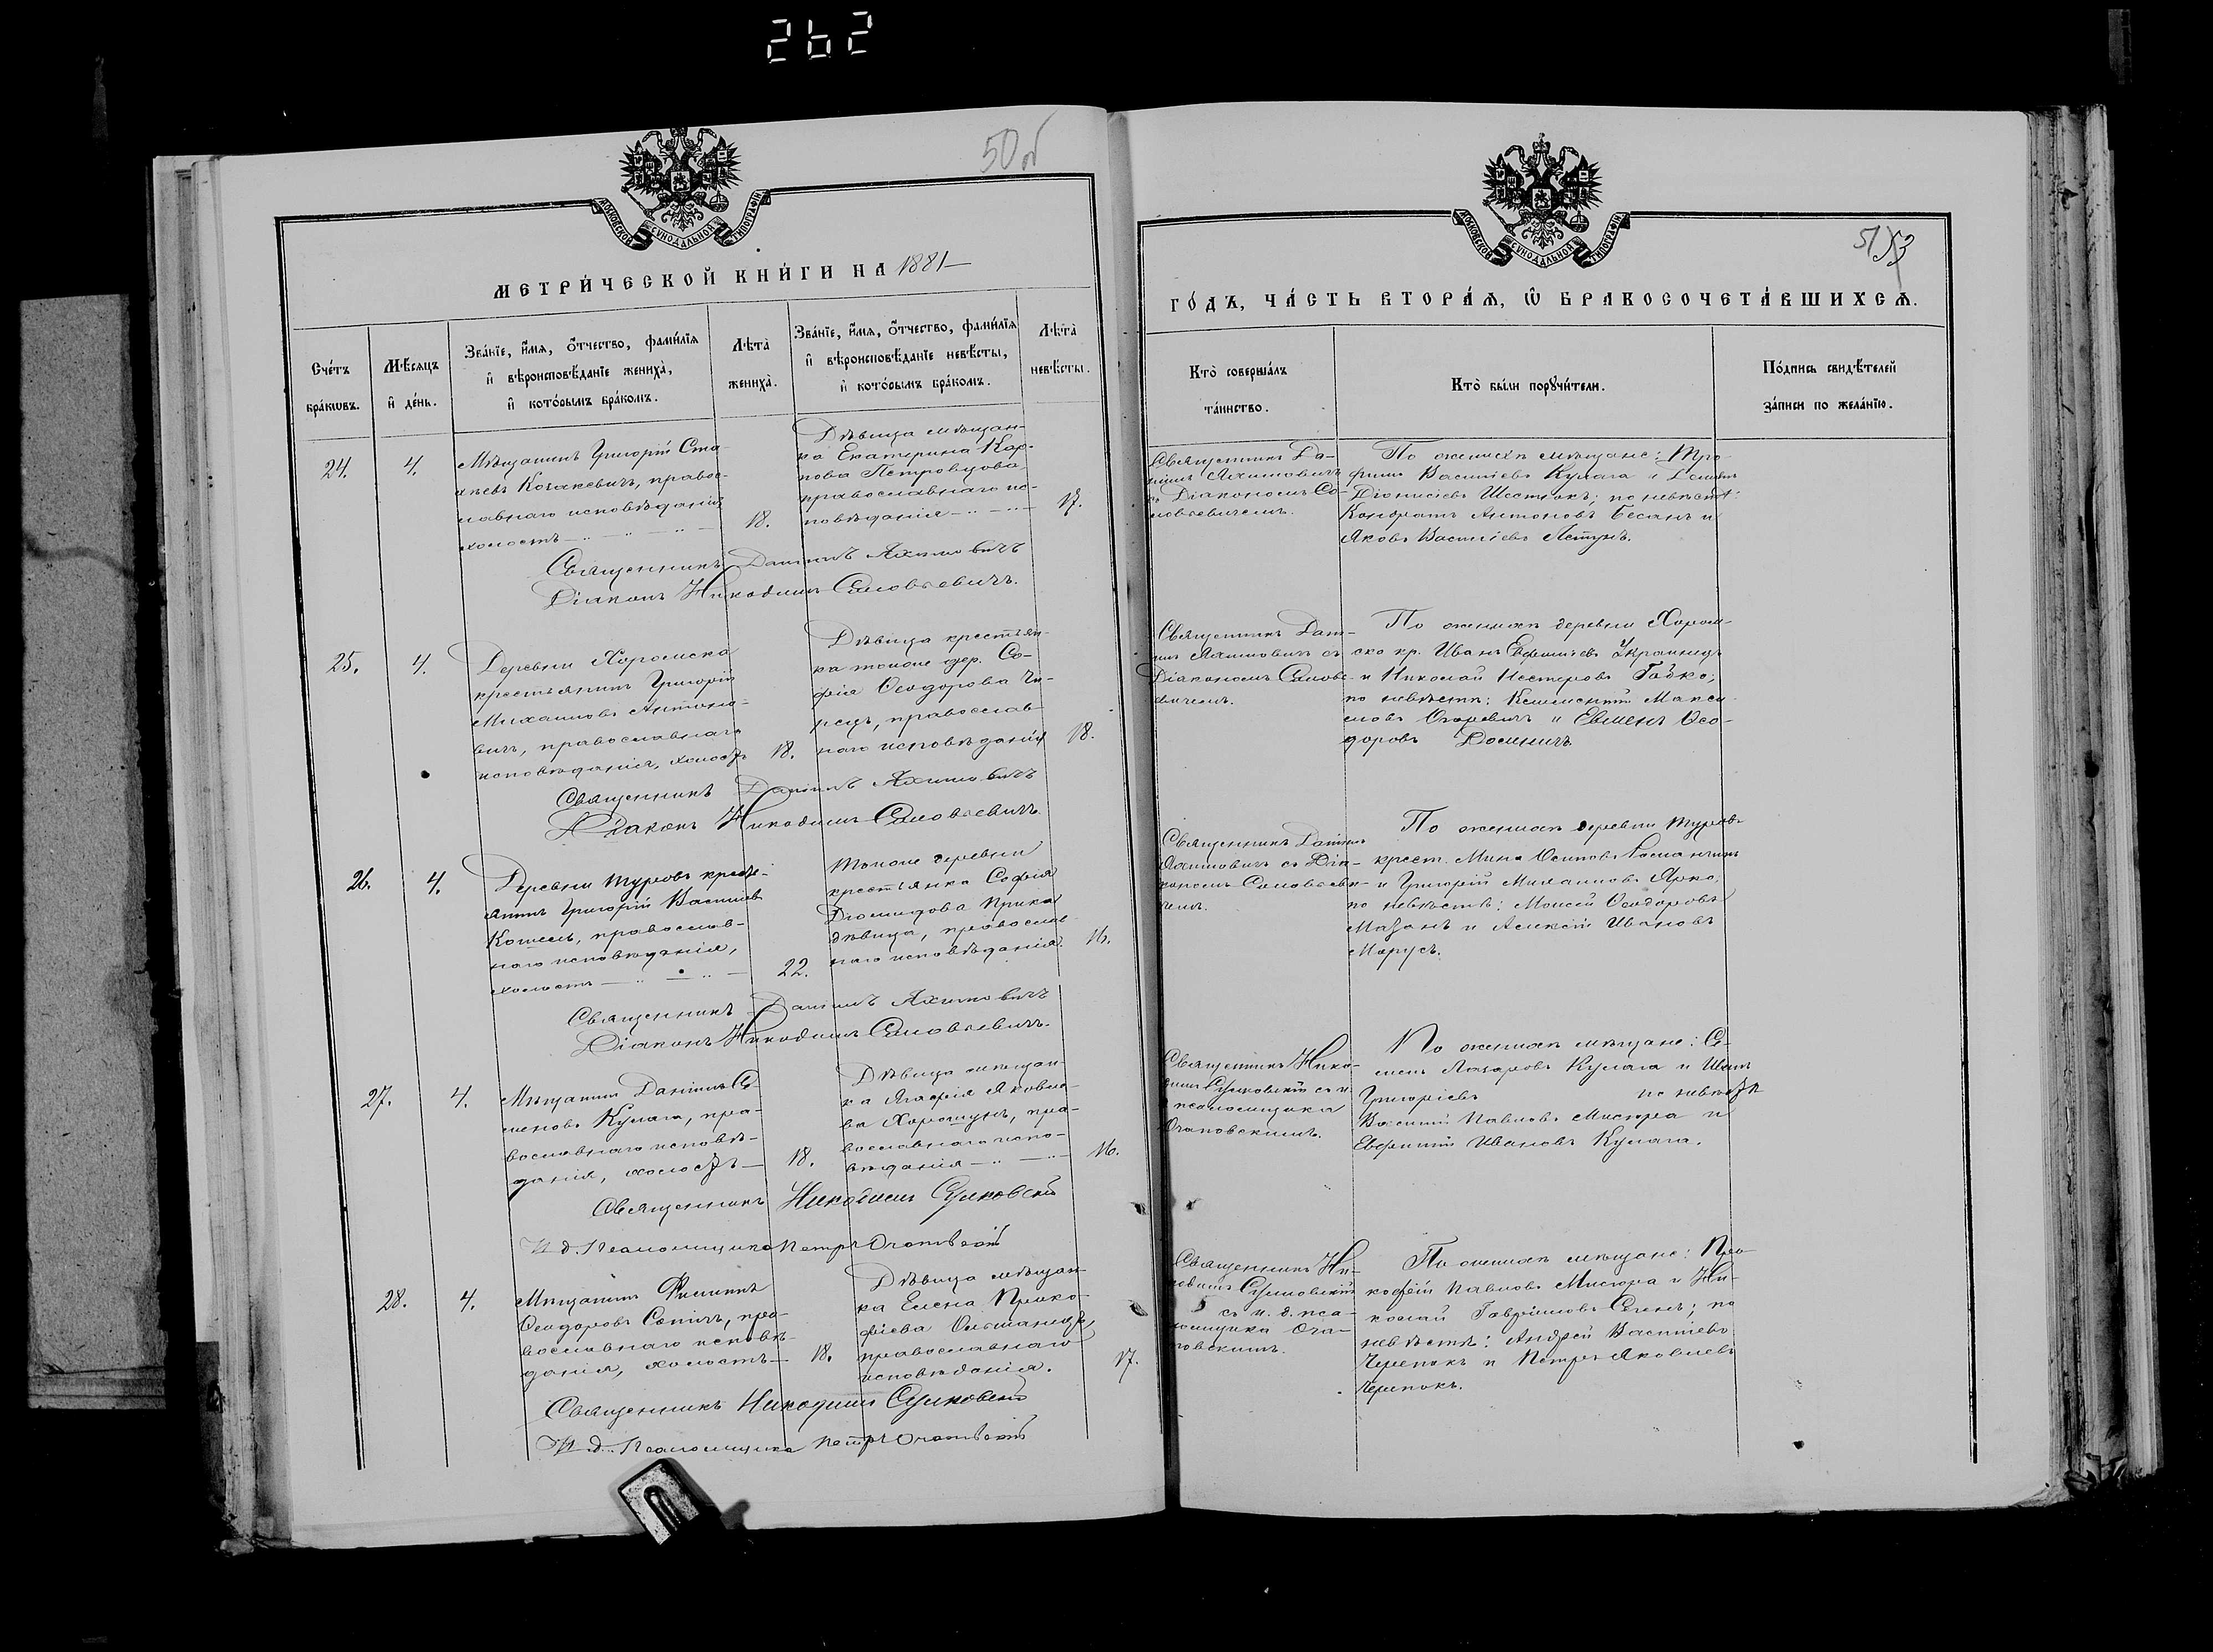 262
50 об
МОСКОВСКОЙ СУНОДАЛЬНОЙ ТИПОГРАФІИ
МЕТРИ́ЧЕСКОЙ КНИ́ГИ НА 1881
Сче́тъ бра́кωвъ.
Мѣ́сяцъ и҆ де́нь.
Зва́нїе, и҆́мѧ, ѻ҆́тчество, фами́лїѧ
и҆ вѣроисповѣ́данїе жениха̀,
и҆ кото́рымъ бра́комъ.
Лѣта̀
жениха̀.
Зва́нїе, и҆́мѧ, ѻ҆́тчество, фами́лїѧ
и҆ вѣроисповѣ́данїе невѣ́сты,
и҆ кото́рымъ бра́комъ.
Лѣта̀
невѣ́сты.
24.
4.
Мѣщанинъ Григорій
Козакевичъ, правос-
лавнаго исповѣданія
холостъ
18.
Дѣвица мѣщан-
ка Екатерина Кар-
пова Петровцова
православнаго ис-
повѣданія
17.
Священникъ Даніилъ Яхимовичъ
Діаконъ Никодимъ Соловьевичъ.
25.
4.
Деревни Хоромска
крестьянинъ Григорій
Михаиловъ Антоно-
вичъ, православнаго
исповѣданія, холостъ
18.
Дѣвица крестьян-
ка тойже дер. Со-
фія Ѳеодорова
православ-
наго исповѣданія
18.
Священникъ Даніилъ Яхимовичъ
Діаконъ Никодимъ Соловьевичъ.
26.
4.
Деревни Туровъ кресть-
янинъ Григорій Василіевъ
Кошель, православ-
наго исповѣданія,
холостъ
22.
Тойже деревни
крестьянка Софія
Діомидова
дѣвица, православ-
наго исповѣданія.
16.
Священникъ Даніилъ Яхимовичъ
Діаконъ Никодимъ Соловьевичъ.
27.
4.
Мѣщанинъ Даніилъ Се-
меновъ Кулага, пра-
вославнаго исповѣ-
данія, холостъ
18.
Дѣвица мѣщан-
ка Агафія Яковле-
ва Хоромунъ, пра-
вославнаго испо-
вѣданія
16.
Священникъ Никодимъ
И. д. Псаломщика Петръ
28.
4.
Мѣщанинъ Филиппъ
Ѳеодоровъ пра-
вославнаго исповѣ-
данія, холостъ
18.
Дѣвица мѣщан-
ка Елена Проко-
фіева
православнаго
исповѣданія.
17.
Священникъ Никодимъ
И. д. Псаломщика Петръ
МОСКОВСКОЙ СУНОДАЛЬНОЙ ТИПОГРАФІИ
51 53
ГО́ДЪ, ЧА́СТЬ ВТОРА́Ѧ, Ѡ҆ БРАКОСОЧЕТА́ВШИХСѦ.
Кто̀ соверша́лъ
та́инство.
Кто̀ бы́ли порꙋчи́тели.
По́дпись свидѣ́телей
за́писи по жела́нїю.
Священникъ Да-
ніилъ Яхимовичъ
съ Діакономъ Со-
ловьевичемъ.
По женихѣ мѣщане: Тро-
фимъ Василіевъ Кулага и
Діонисіевъ Шестюкъ; по невѣстѣ:
Кондратъ Антоновъ и
Яковъ Василіевъ
Священникъ Дані-
илъ Яхимовичъ съ
Діакономъ Соловье-
вичемъ.
По женихѣ деревни Хором-
ска кр. Иванъ Евфиміевъ
и Николай Нестеровъ
по невѣстѣ: Макси-
мовъ и Евменъ Ѳео-
доровъ
Священникъ Даніилъ
Яхимовичъ съ Діа-
кономъ Соловьеви-
чемъ.
По женихѣ деревни Туровъ
крест. Мина Осиповъ
и Григорій Михаиловъ
по невѣстѣ: Моисей Ѳеодоровъ
Мазанъ и Алексій Ивановъ
Марусъ.
Священникъ Нико-
димъ съ и.
псаломщика
По женихѣ мѣщане: Се-
менъ Лазаровъ Кулага и Иванъ
Григоріевъ по невѣстѣ
Василій Павловъ Мисюра и
Евфимій Ивановъ Кулага.
Священникъ Ни-
кодимъ
съ и. д. пса-
ломщика
По женихѣ мѣщане: Про-
кофій Павловъ Мисюра и Ни-
колай Гавріиловъ по
невѣстѣ: Андрей Василіевъ
Черепокъ и Петръ Яковлевъ
Черепокъ.